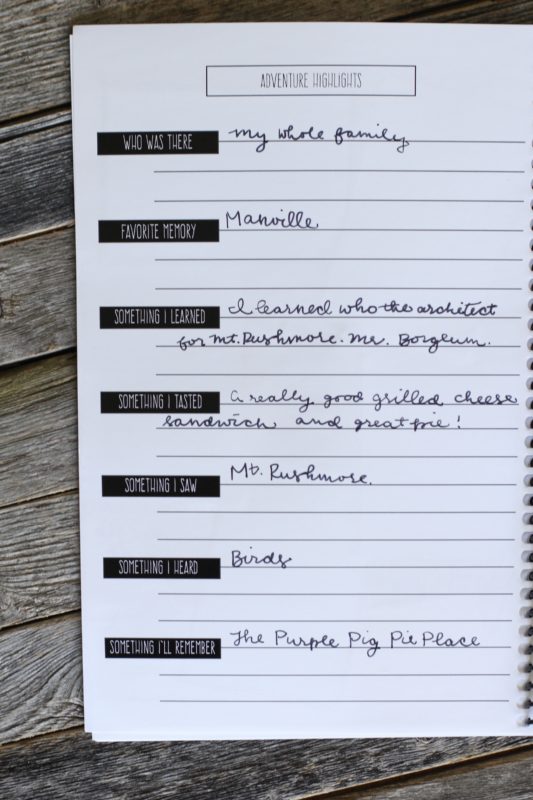 ADVENTURE HIGHLIGHTS
WHO WAS THERE my whole family
FAVORITE MEMORY Manville
SOMETHING I LEARNED I learned who the architect
for Mt. Rushmore. Mr. Borgleum.
SOMETHING I TASTED a really good grilled cheese
sandwich and great pie!
SOMETHING I SAW Mt. Rushmore.
SOMETHING I HEARD Birds
SOMETHING I'LL REMEMBER The Purple Pig Pie Place